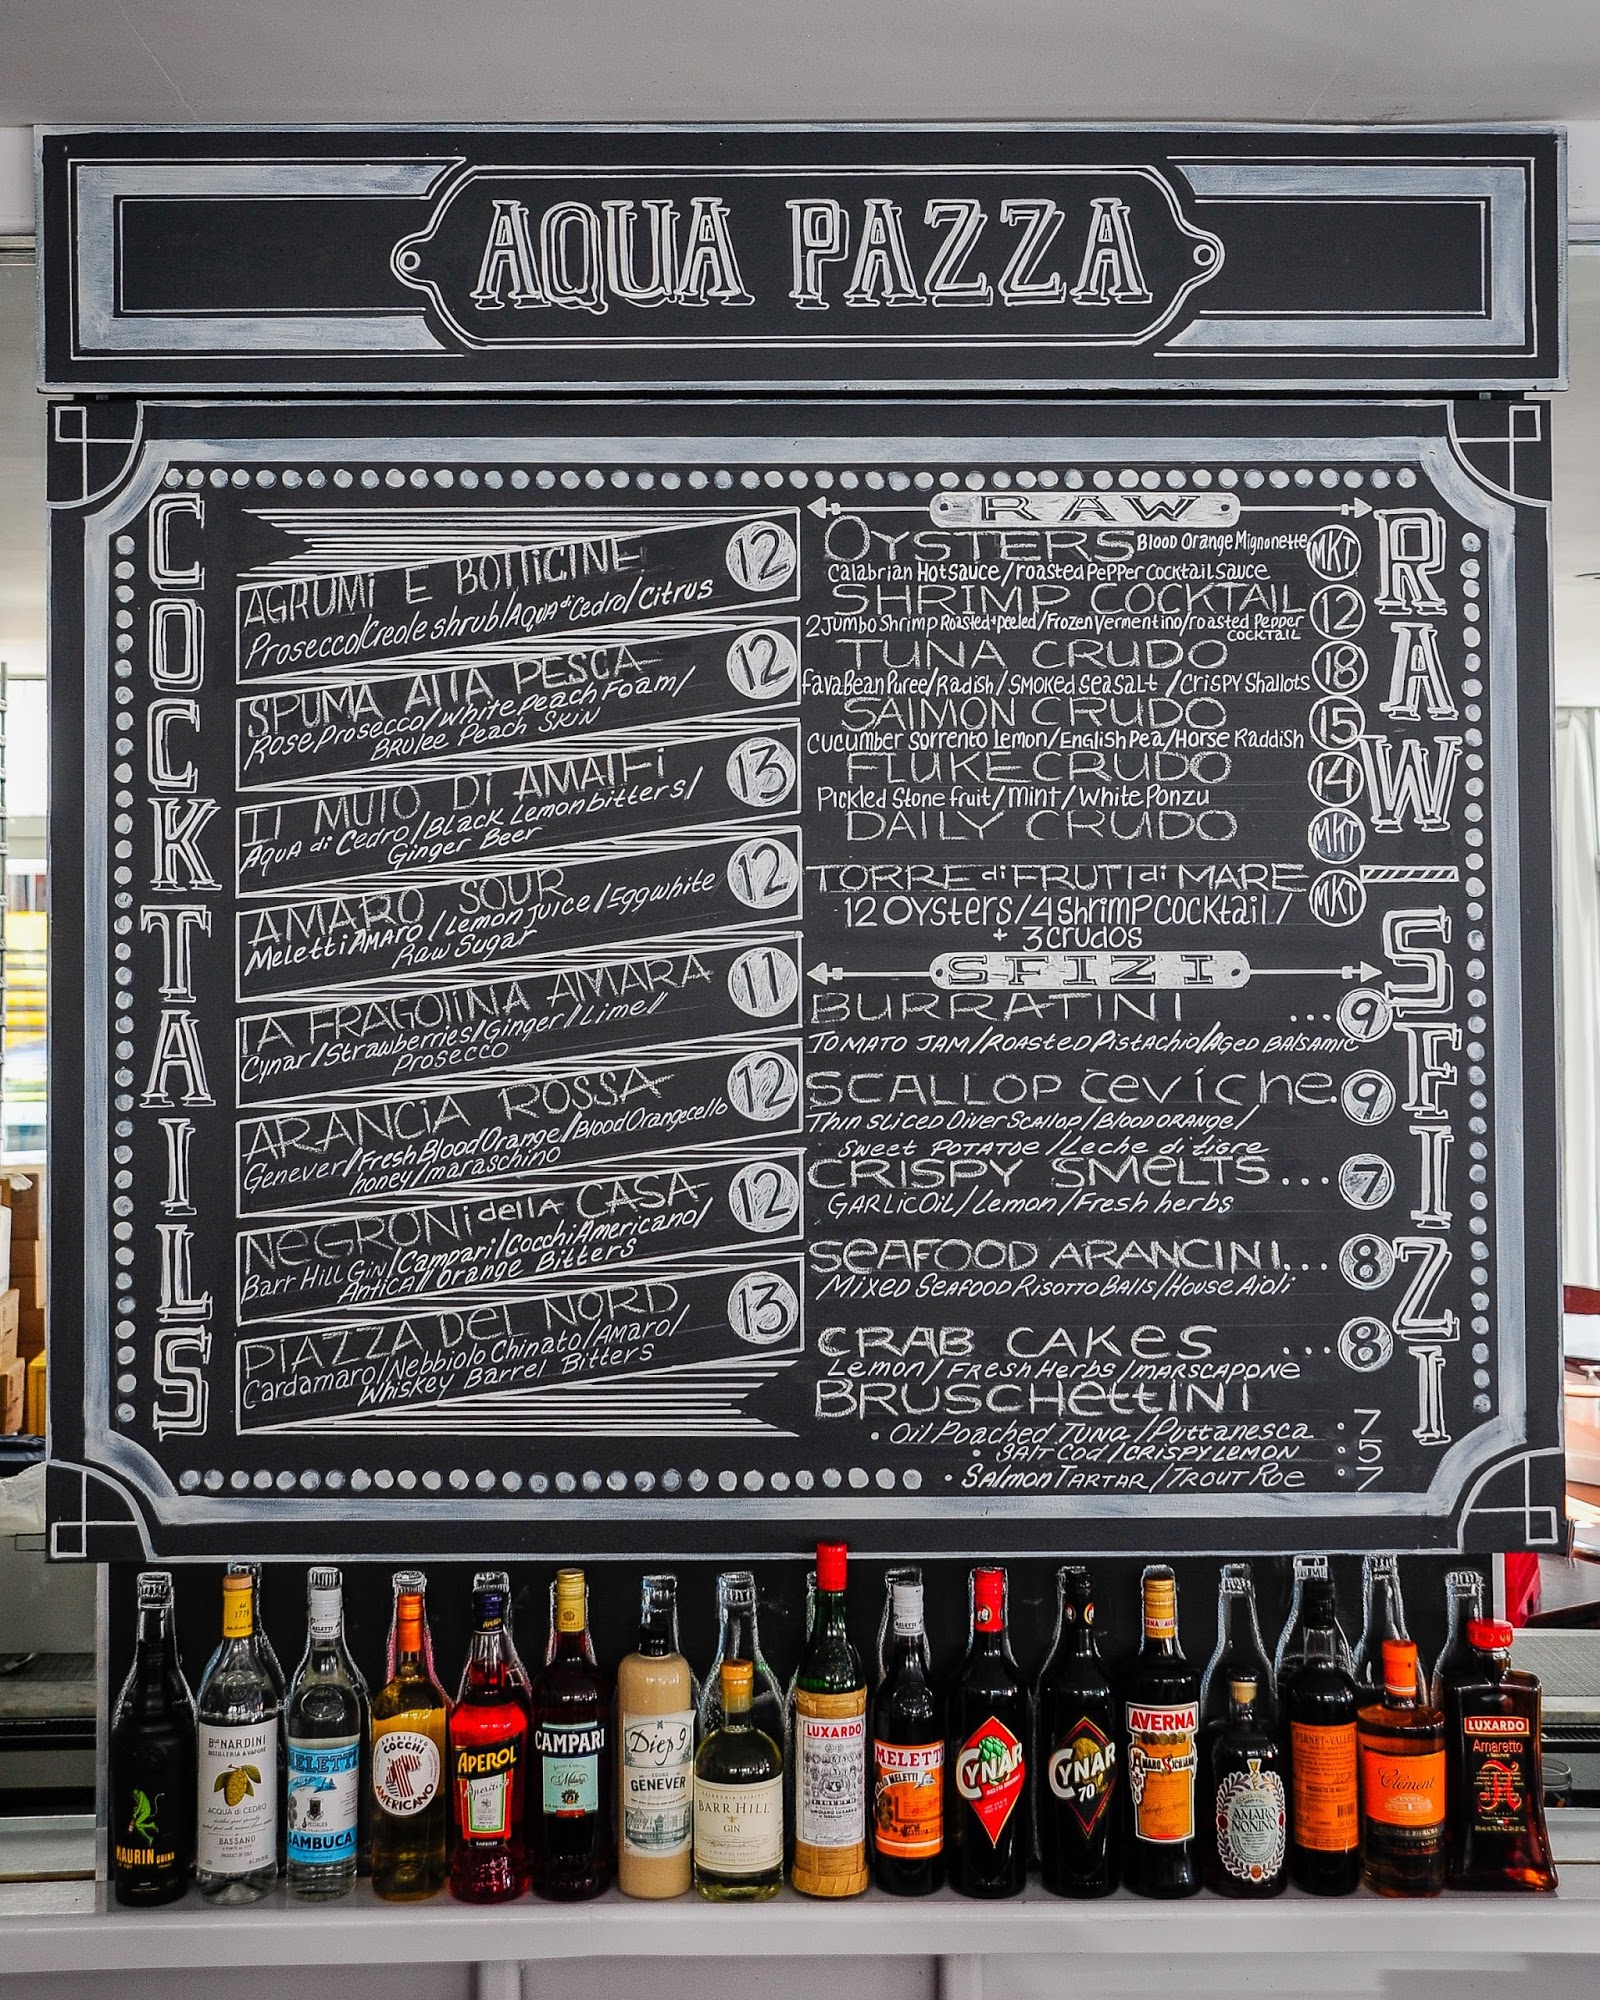 AQUA PAZZA
COCKTAILS
AGRUMI E BOLLICINE 12
Prosecco/Creole shrub/AQUA di Cedro/Citrus
SPUMA AllA PESCA 12
Rose Prosecco/White Peach Foam/
BRulee Peach Skin
Il MULO Di AMAlFi 13
AquA di Cedro/Black Lemon bitters/
Ginger Beer
AMARO SOUR 12
Meletti AMARO/Lemon Juice/Egg white
Raw Sugar
lA FRAGOlINA AMARA 11
Cynar/Strawberries/Ginger/Lime/
Prosecco
ARANCiA ROSSA 12
Genever/Fresh Blood Orange/Blood Orangecello
honey/maraschino
NeGRONi dellA CASA 12
Barr Hill Gin/Campari/Cocchi Americano/
AnticA/Orange Bitters
PIAZZA Del NORD 13
Cardamaro/Nebbiolo Chinato/Amaro/
Whiskey Barrel Bitters
RAW - SFIZI
RAW
OYSTERS Blood Orange Mignonette MKT
Calabrian Hot Sauce/roasted Pepper Cocktail Sauce
SHRIMP COCKTAIL 12
2 Jumbo Shrimp Roasted+peeled/Frozen Vermentino/roasted Pepper
COCKTAIL
TUNA CRUDO 18
Fava Bean Puree/Radish/Smoked Sea Salt/Crispy Shallots
SAlMON CRUDO 15
Cucumber Sorrento Lemon/English Pea/Horse Raddish
FLUKE CRUDO 14
Pickled Stone fruit/Mint/White Ponzu
DAILY CRUDO MKT
TORRE di FRUTI di MARE MKT
12 Oysters/4 Shrimp Cocktail/
+ 3 crudos
SFIZI
BURRATINI ...9
TOMATO JAM/Roasted Pistachio/Aged Balsamic
SCALLOP Ceviche. 9
Thin sliced Diver Scallop/Blood orange/
Sweet Potatoe/Leche di tigre
CRISPY SMeLTS... 7
GARLic Oil/Lemon/Fresh herbs
SeAFOOD ARANCINI... 8
Mixed Seafood Risotto Balls/House Aioli
CRAB CAKeS ...8
Lemon/Fresh Herbs/marscapone
BRUSCHettINI
• Oil Poached Tuna/Puttanesca : 7
• Salt Cod/crispy Lemon : 5
• Salmon Tartar/Trout Roe : 7
MAURIN QUINA
1779
Bлo NARDINI
DISTILLERIA A VAPORE
ACQUA di CEDRO
BASSANO
MELETTI
SAMBUCA
APERITIVO
COCCHI
AMERICANO
APEROL
Aperitivo
BARBIERI
CAMPARI
Milano
Diep 9
YOUNG
GENEVER
BARR HILL
GIN
LUXARDO
MELETTI
CYNAR
CYNAR
70
AVERNA
AMARO SICILIANO
AMARO
NONINO
Clément
LUXARDO
Amaretto